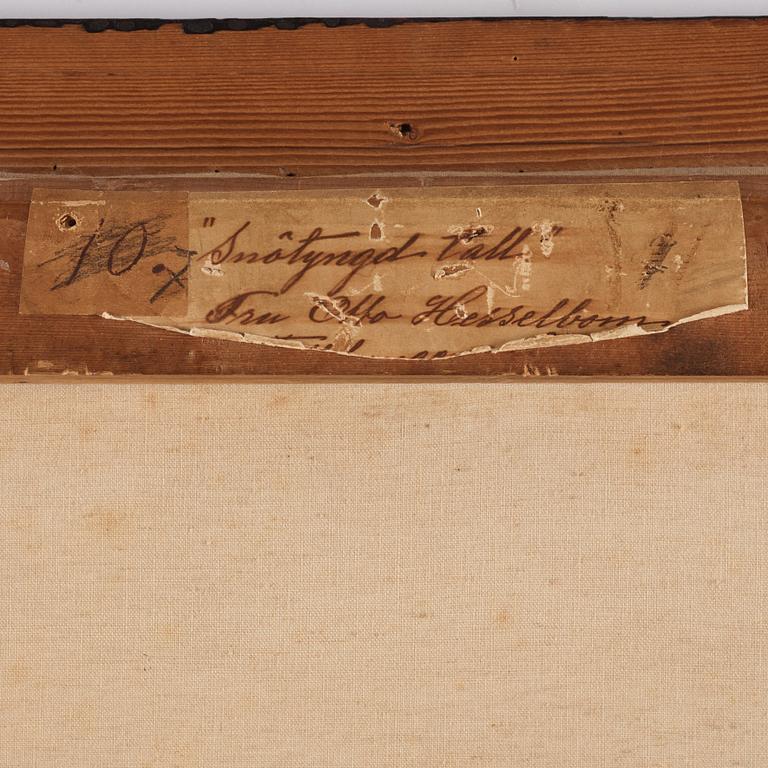 10. x "Snötyngd tall"
Fru Otto Hesselbom